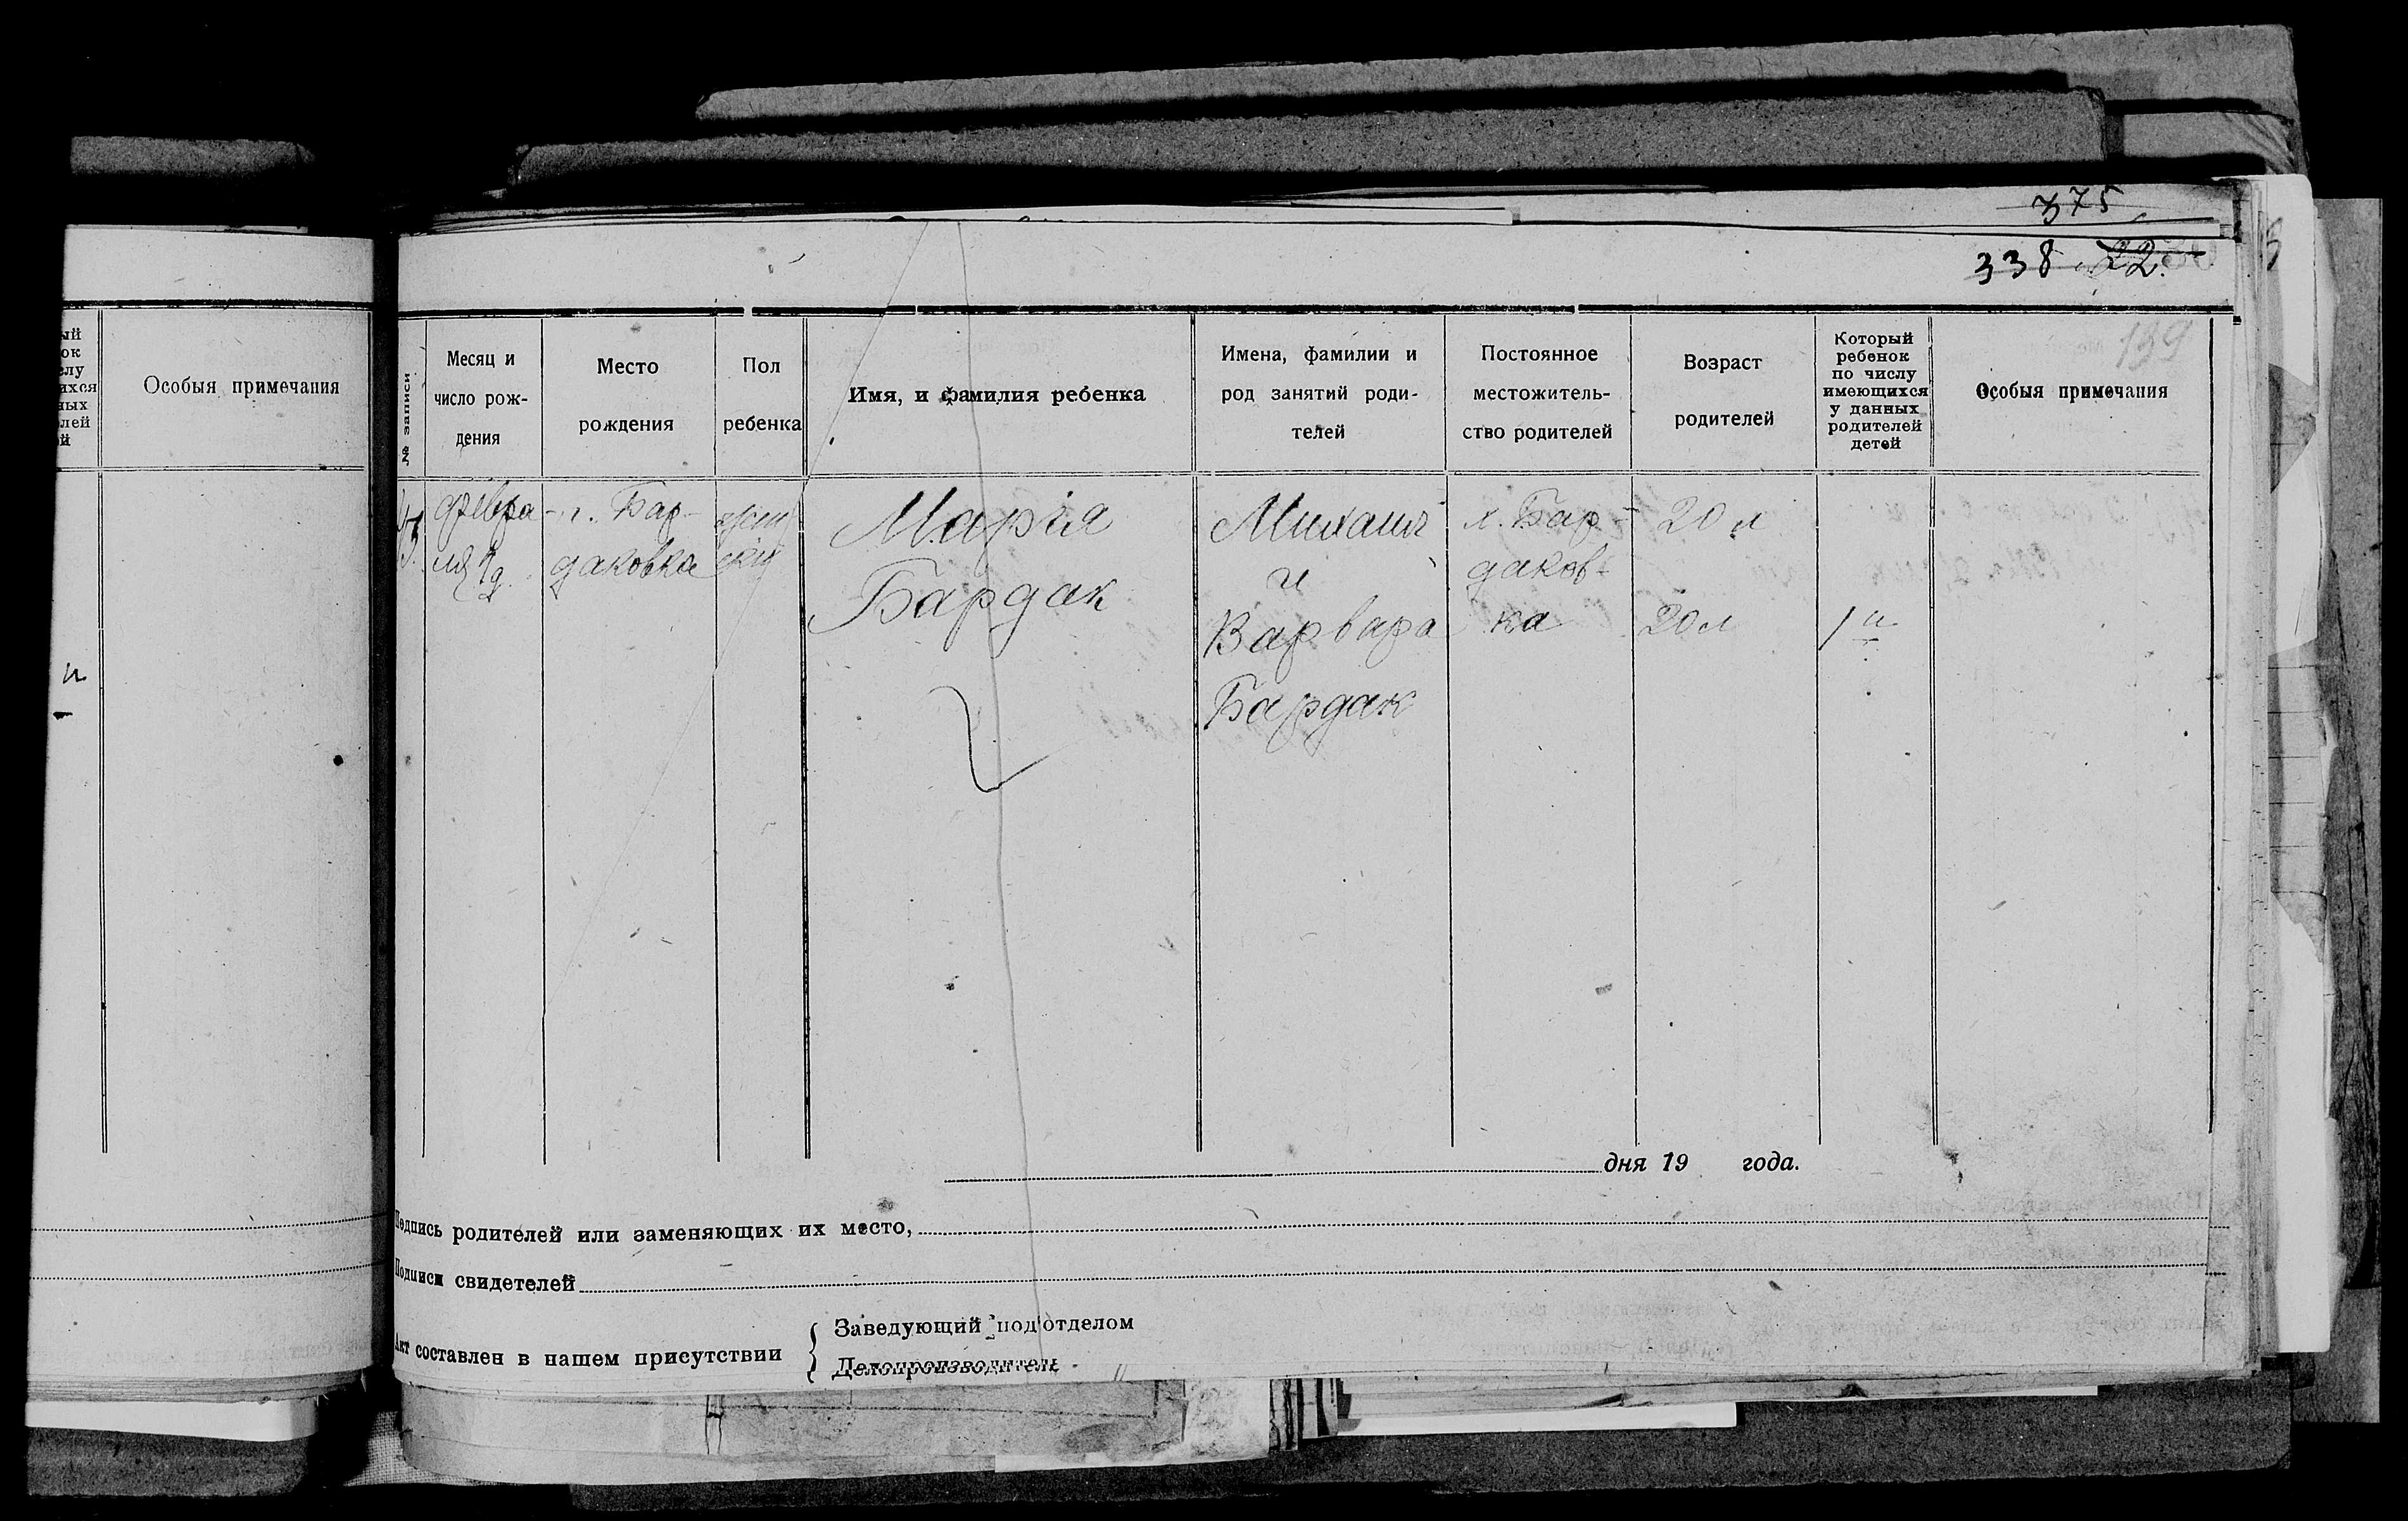 375
338 22.
199
ый
ок
слу
ихся
ных
лей
ой
Особыя примечания
№ записи
Месяц и
число рож-
дения
Место
рождения
Пол
ребенка
Имя, и фамилия ребенка
Имена, фамилии и
род занятий роди-
телей
Постоянное
местожитель-
ство родителей
Возраст
родителей
Который
ребенок
по числу
имеющихся
у данных
родителей
детей
Особыя примечания
февра-
ля
Бар-
даковка
жен
ский
Марія
Бардак
Михаил
и
Варвара
Бардак
х. Бар-
даков-
ка
20 л
20 л
1 й
дня 19 года.
Подпись родителей или заменяющих их место,
Подписи свидетелей
Акт составлен в нашем присутствии
Заведующий подотделом
Делопроизводитель